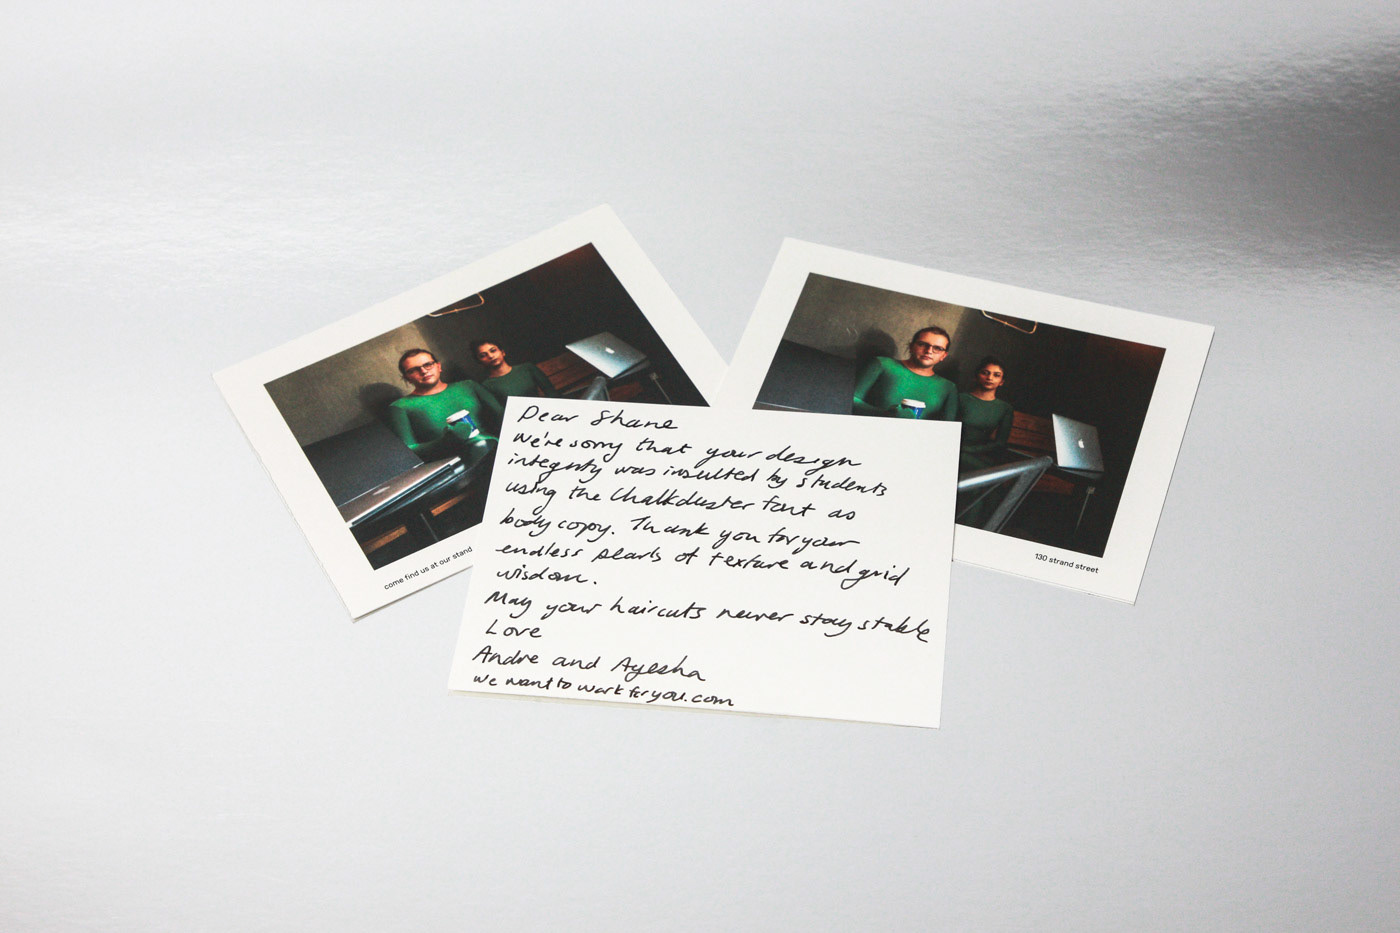 Dear Shane
We're sorry that your design
integrity was insulted by students
using the Chalkduster font as
body copy. Thank you for your
endless pearls of texture and grid
wisdom.
May your haircuts never stay stable
Love
Andre and Ayesha
we want to work for you.com
come find us at our stand
130 strand street